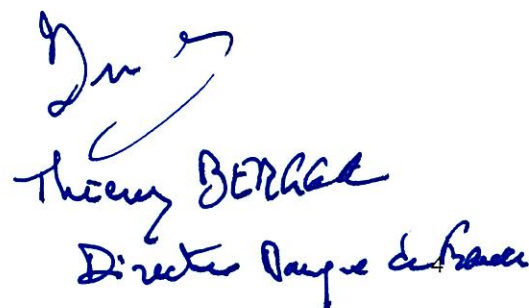 Thierry BERGER
Directeur Banque de France
4